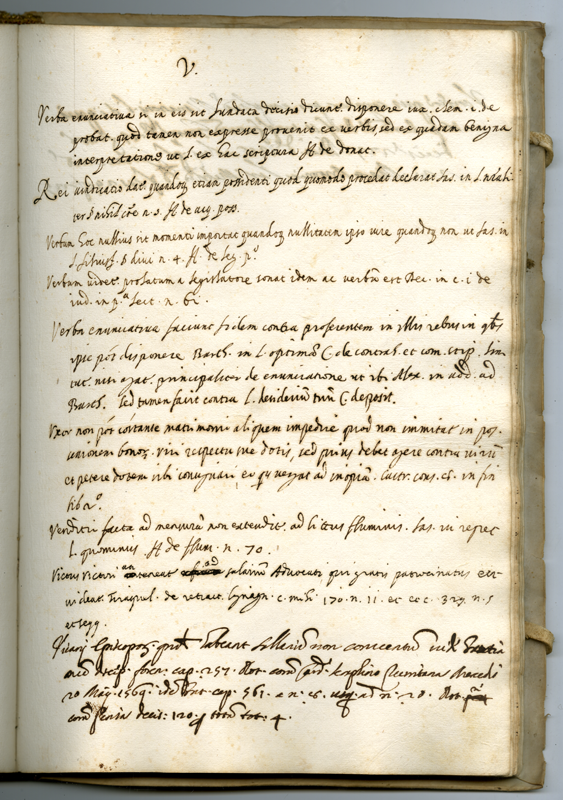 V.
Verba enunciativa si in eis sit fundata decisio dicunt. disponere Dec. clem. 1. de
probat. quod tamen non expresse provenit ex verbis sed ex quadam benigna
interpretatione ut l. ex hac scriptura ff. de donat.
Rei vindicatio dat. quandoq etiam possidenti quod quomodo procedat declarat Jas. in l. naturali
ter § nihil cõe n. 9. ff. de acq. poss.
Verbum hoc nullius sit momenti importat quandoq nullitatem ipso iure quandoq non ut Jas. in
l. § divi n. 4. ff. de leg. pº
Verbum videt. prolatum a legislatore sonat idem ac verbũ est Dec. in c. 1 de
iud. in p.ª lect. n. 61.
Verba enunciativa faciunt fidem contra proferentem in illis rebus in qbs
ipse põt disponere Barth. in l. optimam C. de contrah. et com. stip.
nisi agat. principaliter de enunciatione ut ibi Alex. in add. ad
Barth. sed tamen facit contra l. desiderium tuũ C. deposit.
Uxor non pot constante matrimonio aliquem impedire quod non immittat. in pos-
sessionem bonoȝ viri respectu sue dotis, sed prius debet agere contra virũ
et petere dotem sibi consignari eo qȝ vergat ad inopiã. Castr. cons. 65. in fin
lib. 2º.
Venditio facta ad mensurã non extendit. ad lictus fluminis. Jas. in repet.
l. quominus. ff. de flum. n. 70.
Victus victori an teneat. ad salariũ Advocati qui gratis patrocinatus est
videat. Tiraquel. de retract. lignagn. c. mihi 170. n. 11. et ecc. 327. n. 5
et seqq.
Vicarij Episcopoȝ habeant salariũ non
decis. cap. 257. Not. corã
20 Maij 1569. idẽ cap. 561. a n. 6. usq. ad n. 20. Not.
corã decis: 120 tot. 4.